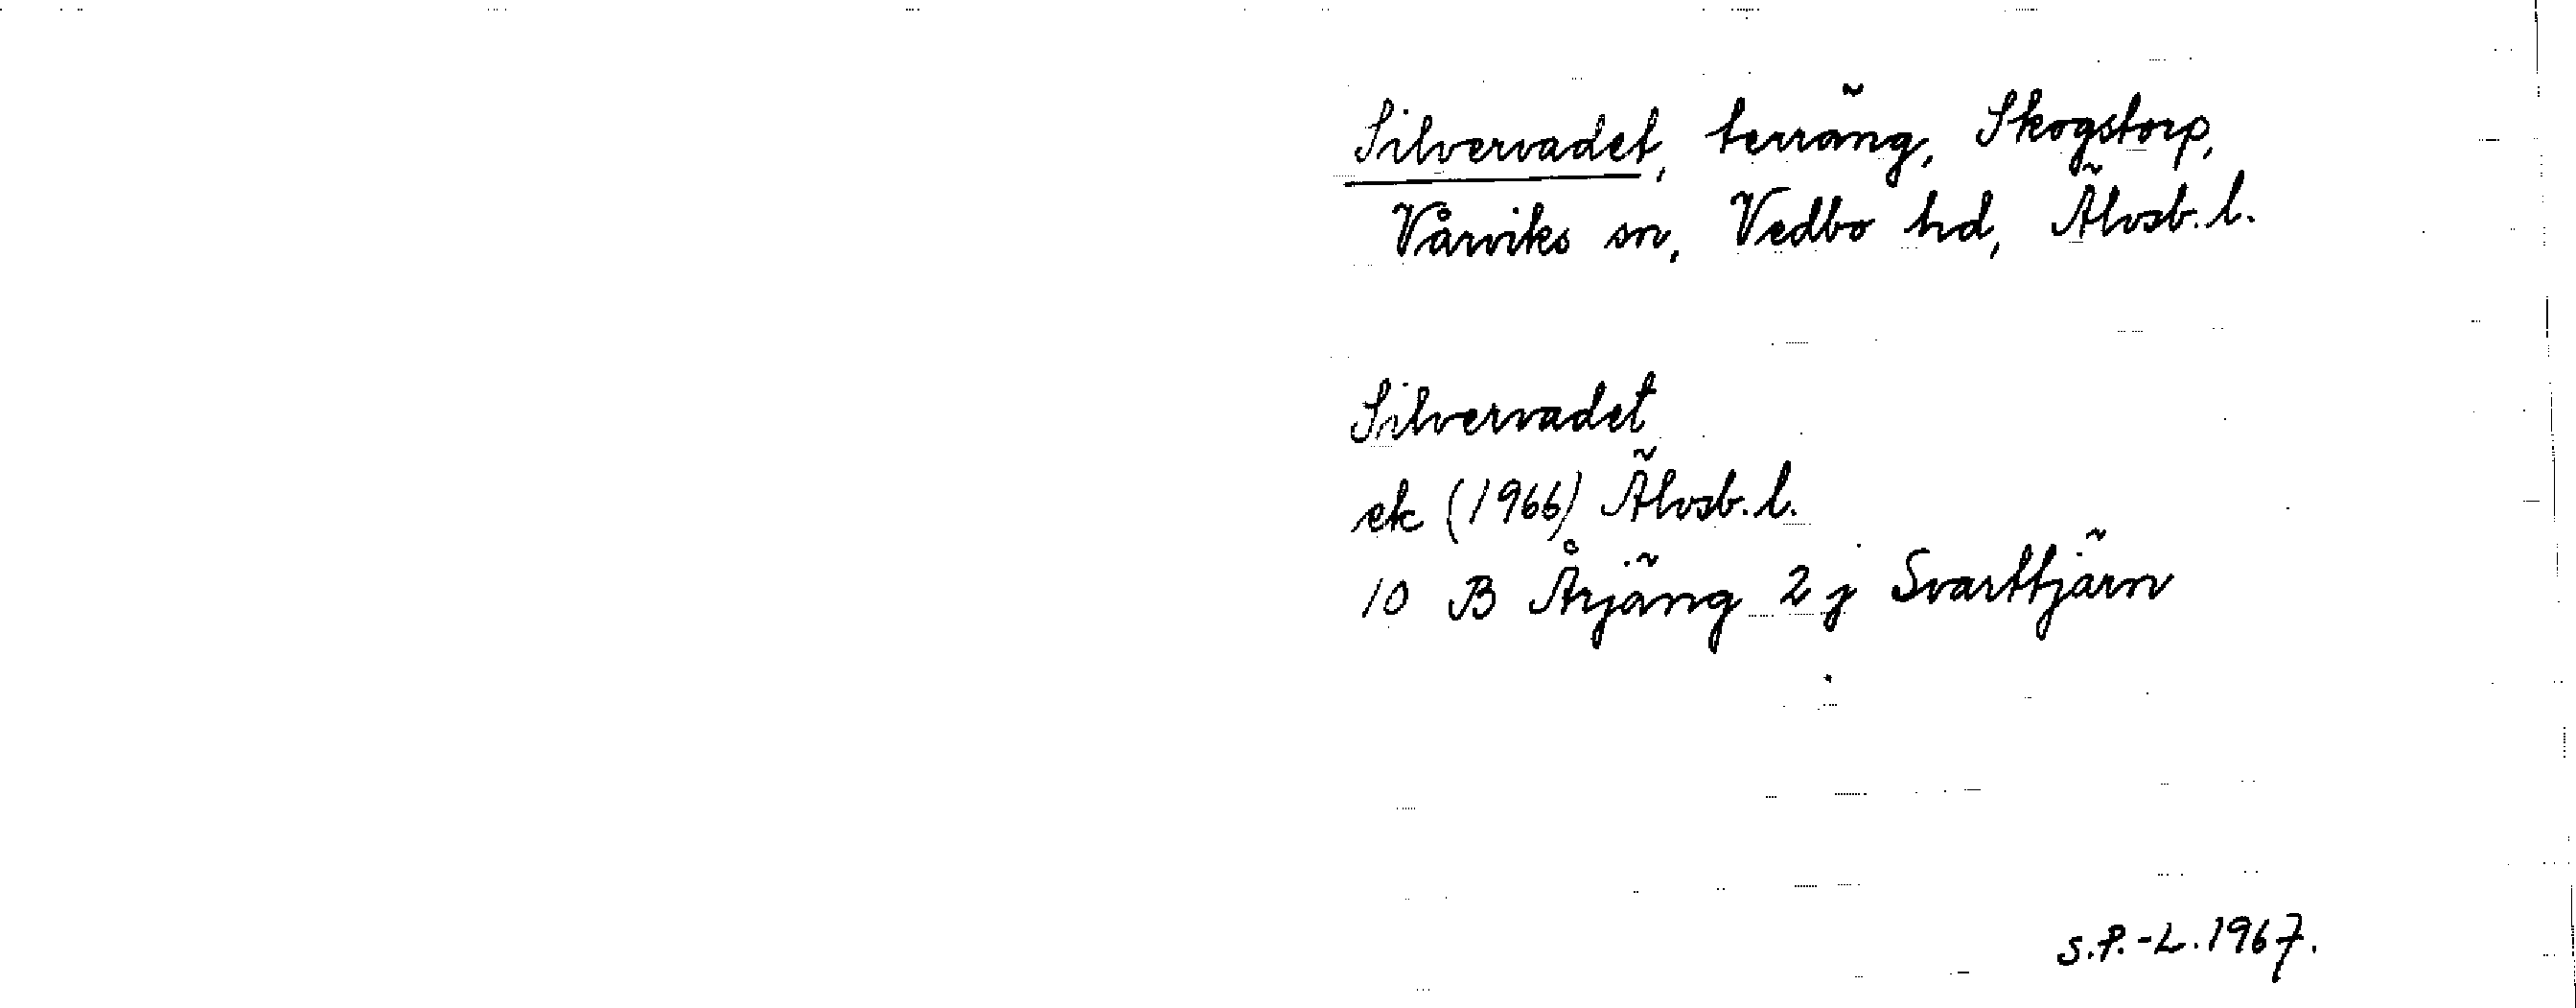 Silvervadet, terräng, Skogstorp,
Vårviks sn, Vedbo hd, Älvsb. l.
Silvervadet
ek (1966) Älvsb. l.
10 B Årjäng 2 j Svarttjärn
S.P.-L. 1967.